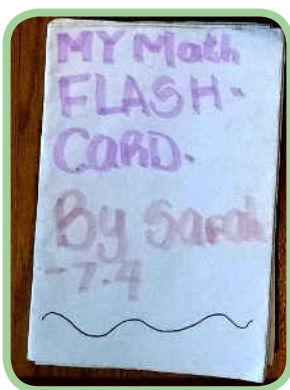 MY Math
FLASH-
CARD.
By Sarah
-7-4